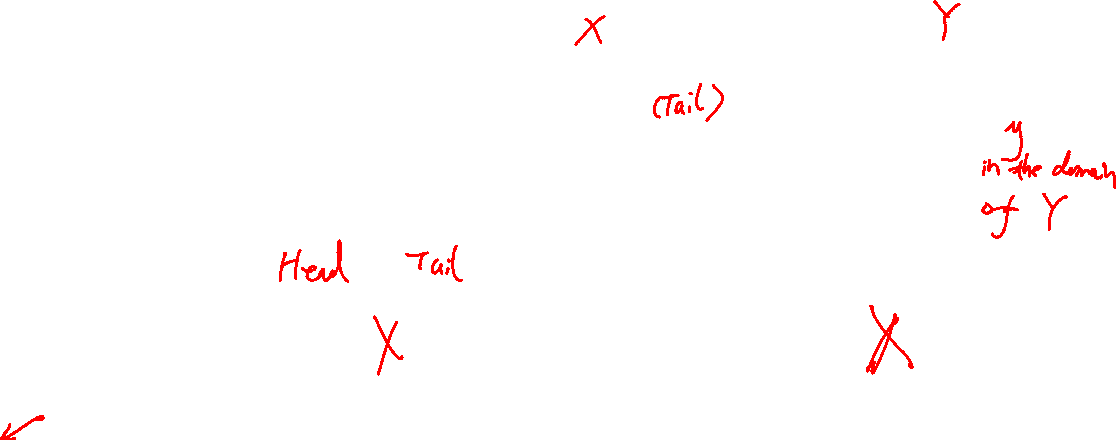 X Y
(Tail)
y
in the domain
of Y
Head Tail
X X